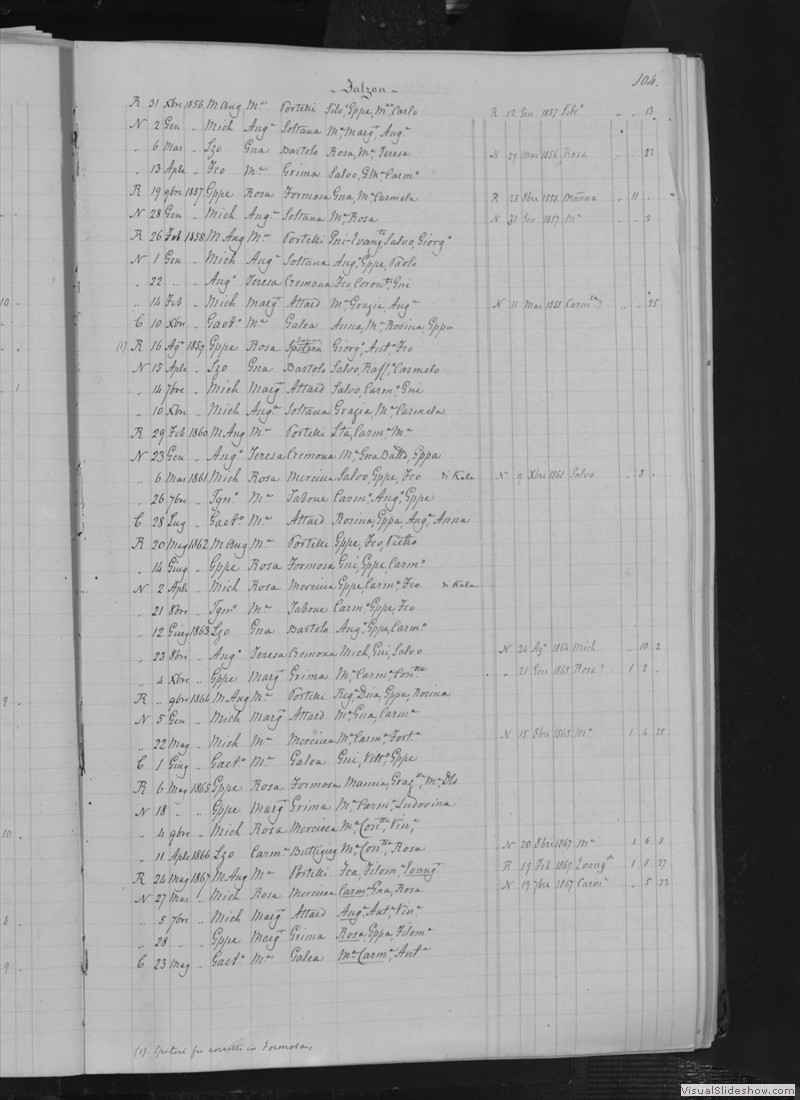 104.
Falzon
R 31 Xbre 1856 M Ang Mª Portelli Silvº, Gppe, Mª Carlo R 12 Gen 1857 Silvº " " 13
N 2 Gen " Mich Angª Soltana Mª Margª, Angª
" 6 Mar " Lzo Gna Bartolo Rosa, Mª, Teresa N 29 Mar 1856 Rosa " " 23
" 13 Aple " Fco Mª Grima Salvo, Carmº
R 19 9bre 1857 Gppe Rosa Formosa Gna, Mª Carmela R 28 8bre 1858 Manna " 11 "
N 28 Gen " Mich Angª Soltana Mª Rosa N 31 Gen 1857 Mª " " 3
R 26 Feb 1858 M Ang Mª Portelli Gni-Evangta Salvo, Giorgº
N 1 Gen " Mich Angª Soltana Angº, Gppe, Paolo
" 22 " " Angº Teresa Cremona Fco, Coronto, Gni
" 14 Feb " Mich Margª Attard Mª Grazia, Angª N 11 Mar 1858 Carmla? " " 25
C 10 Xbre " Gaetº Mª Galea Anna, Mª Rosina, Gppa
(1) R 16 Agº 1859 Gppe Rosa Spiteri Giorgº, Antº, Fco
N 15 Aple " Lzo Gna Bartolo Salvo, Raffº, Carmelo
" 14 7bre " Mich Margª Attard Salvo, Carmº, Gni
" 10 Xbre " Mich Angª Soltana Grazia, Mª Carmela
R 29 Feb 1860 M Ang Mª Portelli Sta, Carmª, Mª
N 23 Gen " Angº Teresa Cremona Mª, Gna Batta, Gppa
" 6 Mar 1861 Mich Rosa Mercieca Salvo, Gppe, Fco di Kala N 9 Xbre 1861 Salvo " 8 "
" 26 7bre " Ignº Mª Tabone Carmº, Angº, Gppe
C 28 Lug " Gaetº Mª Attard Rosina, Gppa, Angª, Anna
R 20 Mag 1862 M Ang Mª Portelli Gppe, Fco, Pietro
" 14 Giug " Gppe Rosa Formosa Gni, Gppe, Carmº
N 2 Aple " Mich Rosa Mercieca Gppe, Carmº, Fco di Kala
" 21 8bre " Ignº Mª Tabone Carmº, Gppe, Fco
" 12 Giug 1863 Lzo Gna Bartolo Angº, Gppe, Carmº
" 23 8bre " Angº Teresa Cremona Mich, Gni, Salvo N 24 Agº 1864 Mich " 10 2
" 4 Xbre " Gppe Margª Grima Mª Carmª, Contta " 21 Gen 1865 Rosa? 1 2 "
R " 9bre 1864 M Ang Mª Portelli Regª, Gppa, Rosina
N 5 Gen " Mich Margª Attard Mª, Gna, Carmª
" 22 Mag " Mich Mª Mercieca Mª, Carmª, Fortª N 15 8bre 1865 Mª 1 4 25
C 1 Giug " Gaetº Mª Galea Gni, Vittº, Gppe
R 6 Mag 1865 Gppe Rosa Formosa Manna, Grazª, Mª Dls
N 18 " " Gppe Margª Grima Mª, Carmª, Ludovina
" 4 9bre " Mich Rosa Mercieca Mª, Contta, Vinª
" 11 Aple 1866 Lzo Carmª Buttigieg Mª, Contta, Rosa N 20 8bre 1867 Mª 1 6 8
R 24 Mag 1867 M Ang Mª Portelli Fca, Filomª, Evangª R 19 Feb 1869 Evangta 1 8 27
N 27 Mar " Mich Rosa Mercieca Carmª, Gna, Rosa N 19 7bre 1867 Carmª " 5 23
" 5 7bre " Mich Margª Attard Angª, Antª, Vinª
" 28 " " Gppe Margª Grima Rosa, Gppa, Filomª
C 23 Mag " Gaetº Mª Galea Mª Carmª, Antª
(1). Spiteri fu corretto in Formosa.
VisualSlideshow.com